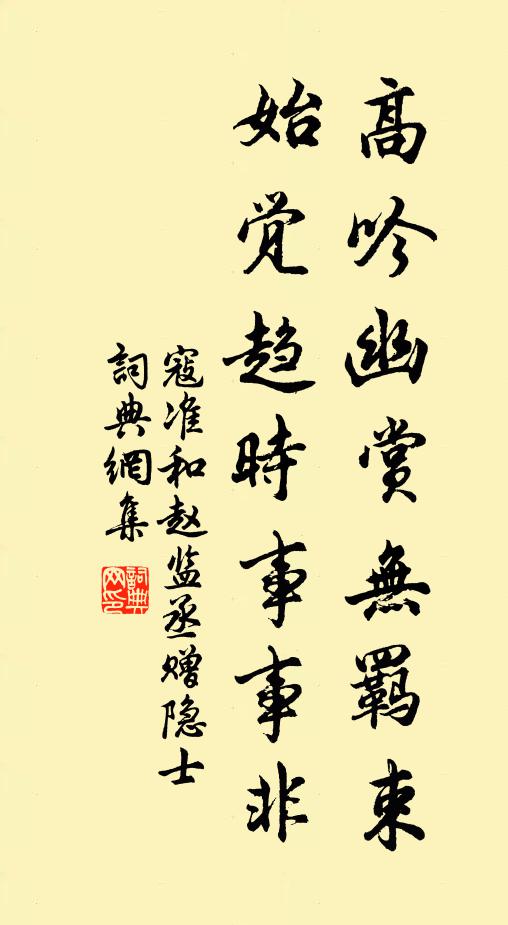 高吟幽赏無羁束
始觉趋時事事非
寇准和赵监丞赠隐士
詞典網集
詞典网印